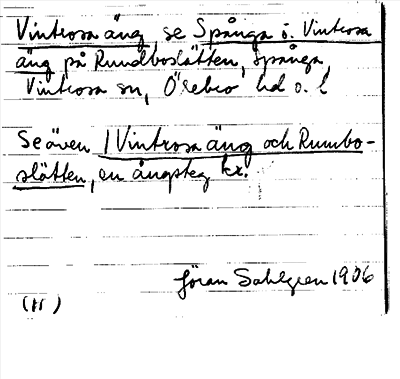 Vintrosa äng se Spånga i Vintrosa
äng på Rumboslätten, Spånga,
Vintrosa sn, Örebro hd o. l
Se även 1 Vintrosa äng och Rumbo-
slätten, en ängsteg kr.
Jöran Sahlgren 1906
(H)